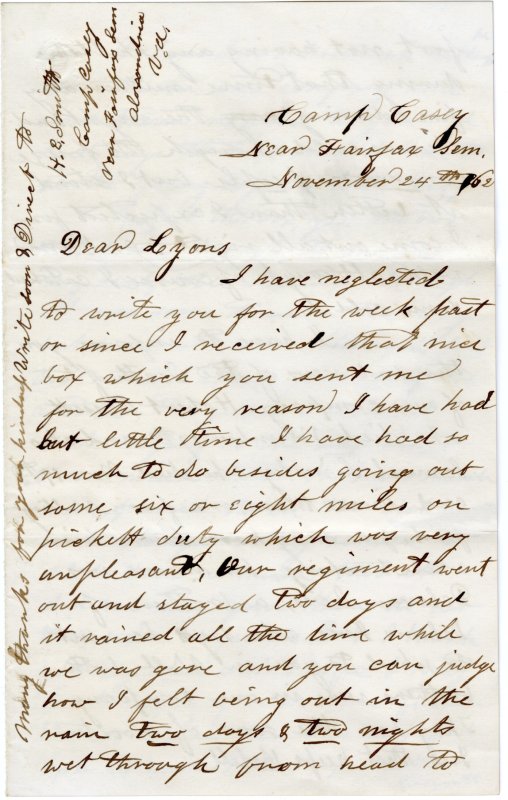 Camp Casey
Near Fairfax Sem.
November 24th /62
Dear Lyons
I have neglected
to write you for the week past
or since I received that nice
box which you sent me
for the very reason I have had
but little time I have had so
much to do besides going out
some six or eight miles on
pickett duty which was very
unpleasant, Our regiment went
out and stayed two days and
it rained all the time while
we was gone and you can judge
how I felt being out in the
rain two days & two nights
wet through from head to
Many thanks for your kindness Write soon & Direct to
H. E. Smith
Camp Casey
Near Fairfax Sem
Alexandria
Va.